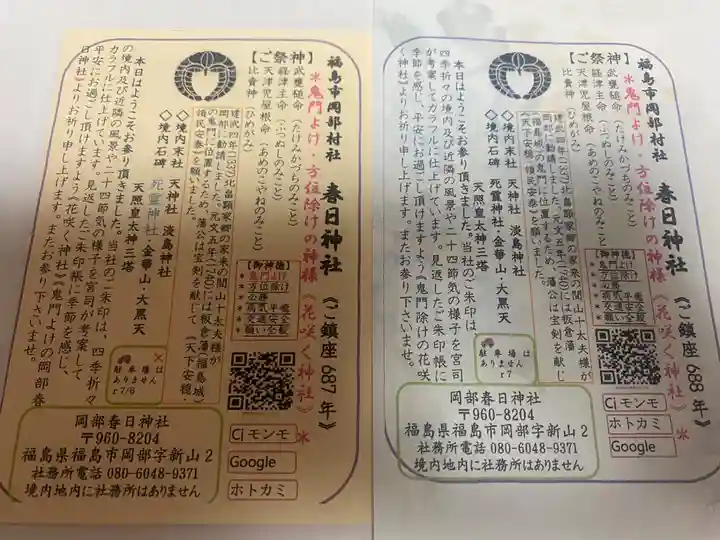 福島市岡部村社 春日神社 《ご鎮座 688年》
＊鬼門よけ・方位除けの神様《花咲く神社》
【ご祭神】
武甕槌命（たけみかづちのみこと）
経津主命（ふつぬしのみこと）
天津児屋根命（あめのこやねのみこと）
比賣神（ひめがみ）
建武四年(1337)北畠顕家卿の家来の間山十太夫様が
岡部に勧請しました。元文五年(1740)には板倉藩
《福島城》の鬼門に位置するため、藩公は宝剣を献じて
《天下安穏・領民安泰》を願いました。
◇境内末社 天神社 淡島神社
天照皇太神三塔
◇境内石碑 死霊神社・金華山・大黒天
本日はようこそお参り頂きました。当社のご朱印は、
四季折々の境内及び近隣の風景や二十四節気の様子を宮司
が考案してカラフルに仕上げています。見返したご朱印帳に
季節を感じ、平安にお過ごし頂けますよう《鬼門除けの花咲
く神社》よりお祈り申し上げます。またお参り下さいませ。
【御神徳】
＊鬼門よけ
＊方位除け
＊必勝
＊病気平癒
＊交通安全
＊願い全般
駐車場は
ありません
r7
Cjモンモ
ホトカミ
Google
岡部春日神社
〒960-8204
福島県福島市岡部字新山2
社務所電話 080-6048-9371
境内地内に社務所はありません
福島市岡部村社 春日神社 《ご鎮座 687年》
＊鬼門よけ・方位除けの神様《花咲く神社》
【ご祭神】
武甕槌命（たけみかづちのみこと）
経津主命（ふつぬしのみこと）
天津児屋根命（あめのこやねのみこと）
比賣神（ひめがみ）
建武四年(1337)北畠顕家卿の家来の間山十太夫様が
岡部に勧請しました。元文五年(1740)には板倉藩《福島城》
の鬼門に位置するため、藩公は宝剣を献じて、《天下安穏・
領民安泰》を願いました。
◇境内末社 天神社 淡島神社
天照皇太神三塔
◇境内石碑 死霊神社・金華山・大黒天
本日はようこそお参り頂きました。当社のご朱印は、四季折々
の境内及び近隣の風景や二十四節気の様子を宮司が考案して
カラフルに仕上げています。見返したご朱印帳に季節を感じ、
平安にお過ごし頂けますよう《花咲く神社》《鬼門よけの岡部春
日神社》よりお祈り申し上げます。またお参り下さいませ。
【御神徳】
＊鬼門よけ
＊方位除け
＊必勝
＊病気平癒
＊交通安全
＊願い全般
駐車場は
ありません
r7/6
Cjモンモ
Google
ホトカミ
岡部春日神社
〒960-8204
福島県福島市岡部字新山2
社務所電話 080-6048-9371
境内地内に社務所はありません